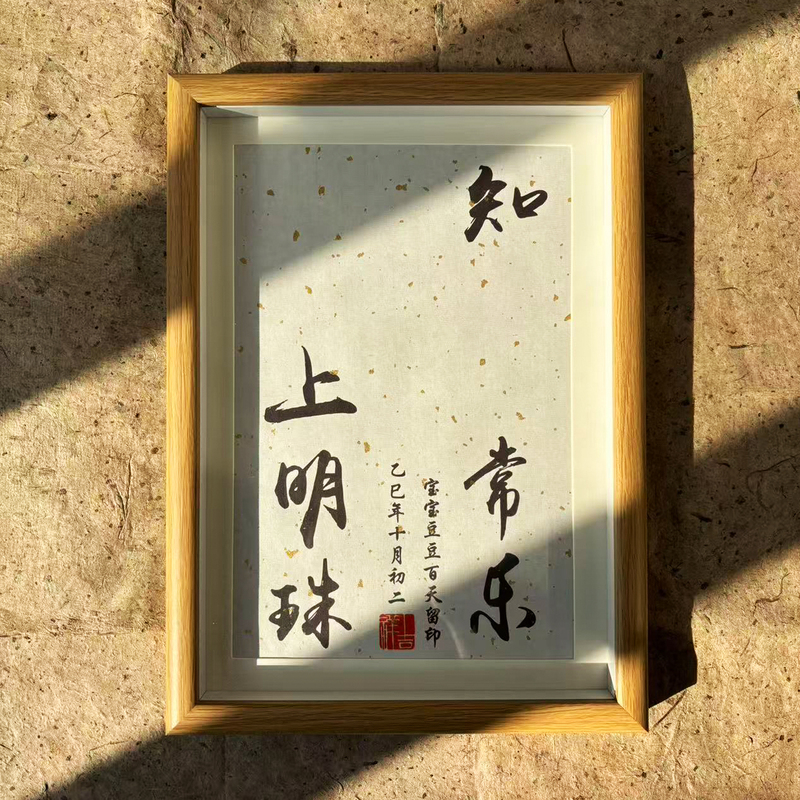 知常乐
宝宝豆豆百天留印
乙巳年十月初二
吉祥
上明珠